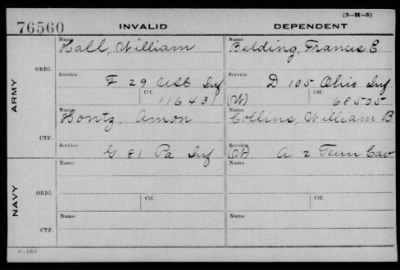 (3-H-5)
76560 INVALID DEPENDENT
Name Name
Hall, William Belding, Francis E
ORIG.
Service Service
F 29 USC Inf D 105 Ohio Inf
Ctf. Ctf.
11643 (W) 68505
ARMY
Name Name
Hontz, Amon Collins, William B.
CTF.
Service Service
G 81 Pa Inf (W) A 2 Tenn Cav
Name Name
ORIG.
Service Service
NAVY
Name Name
CTF.
Service Service